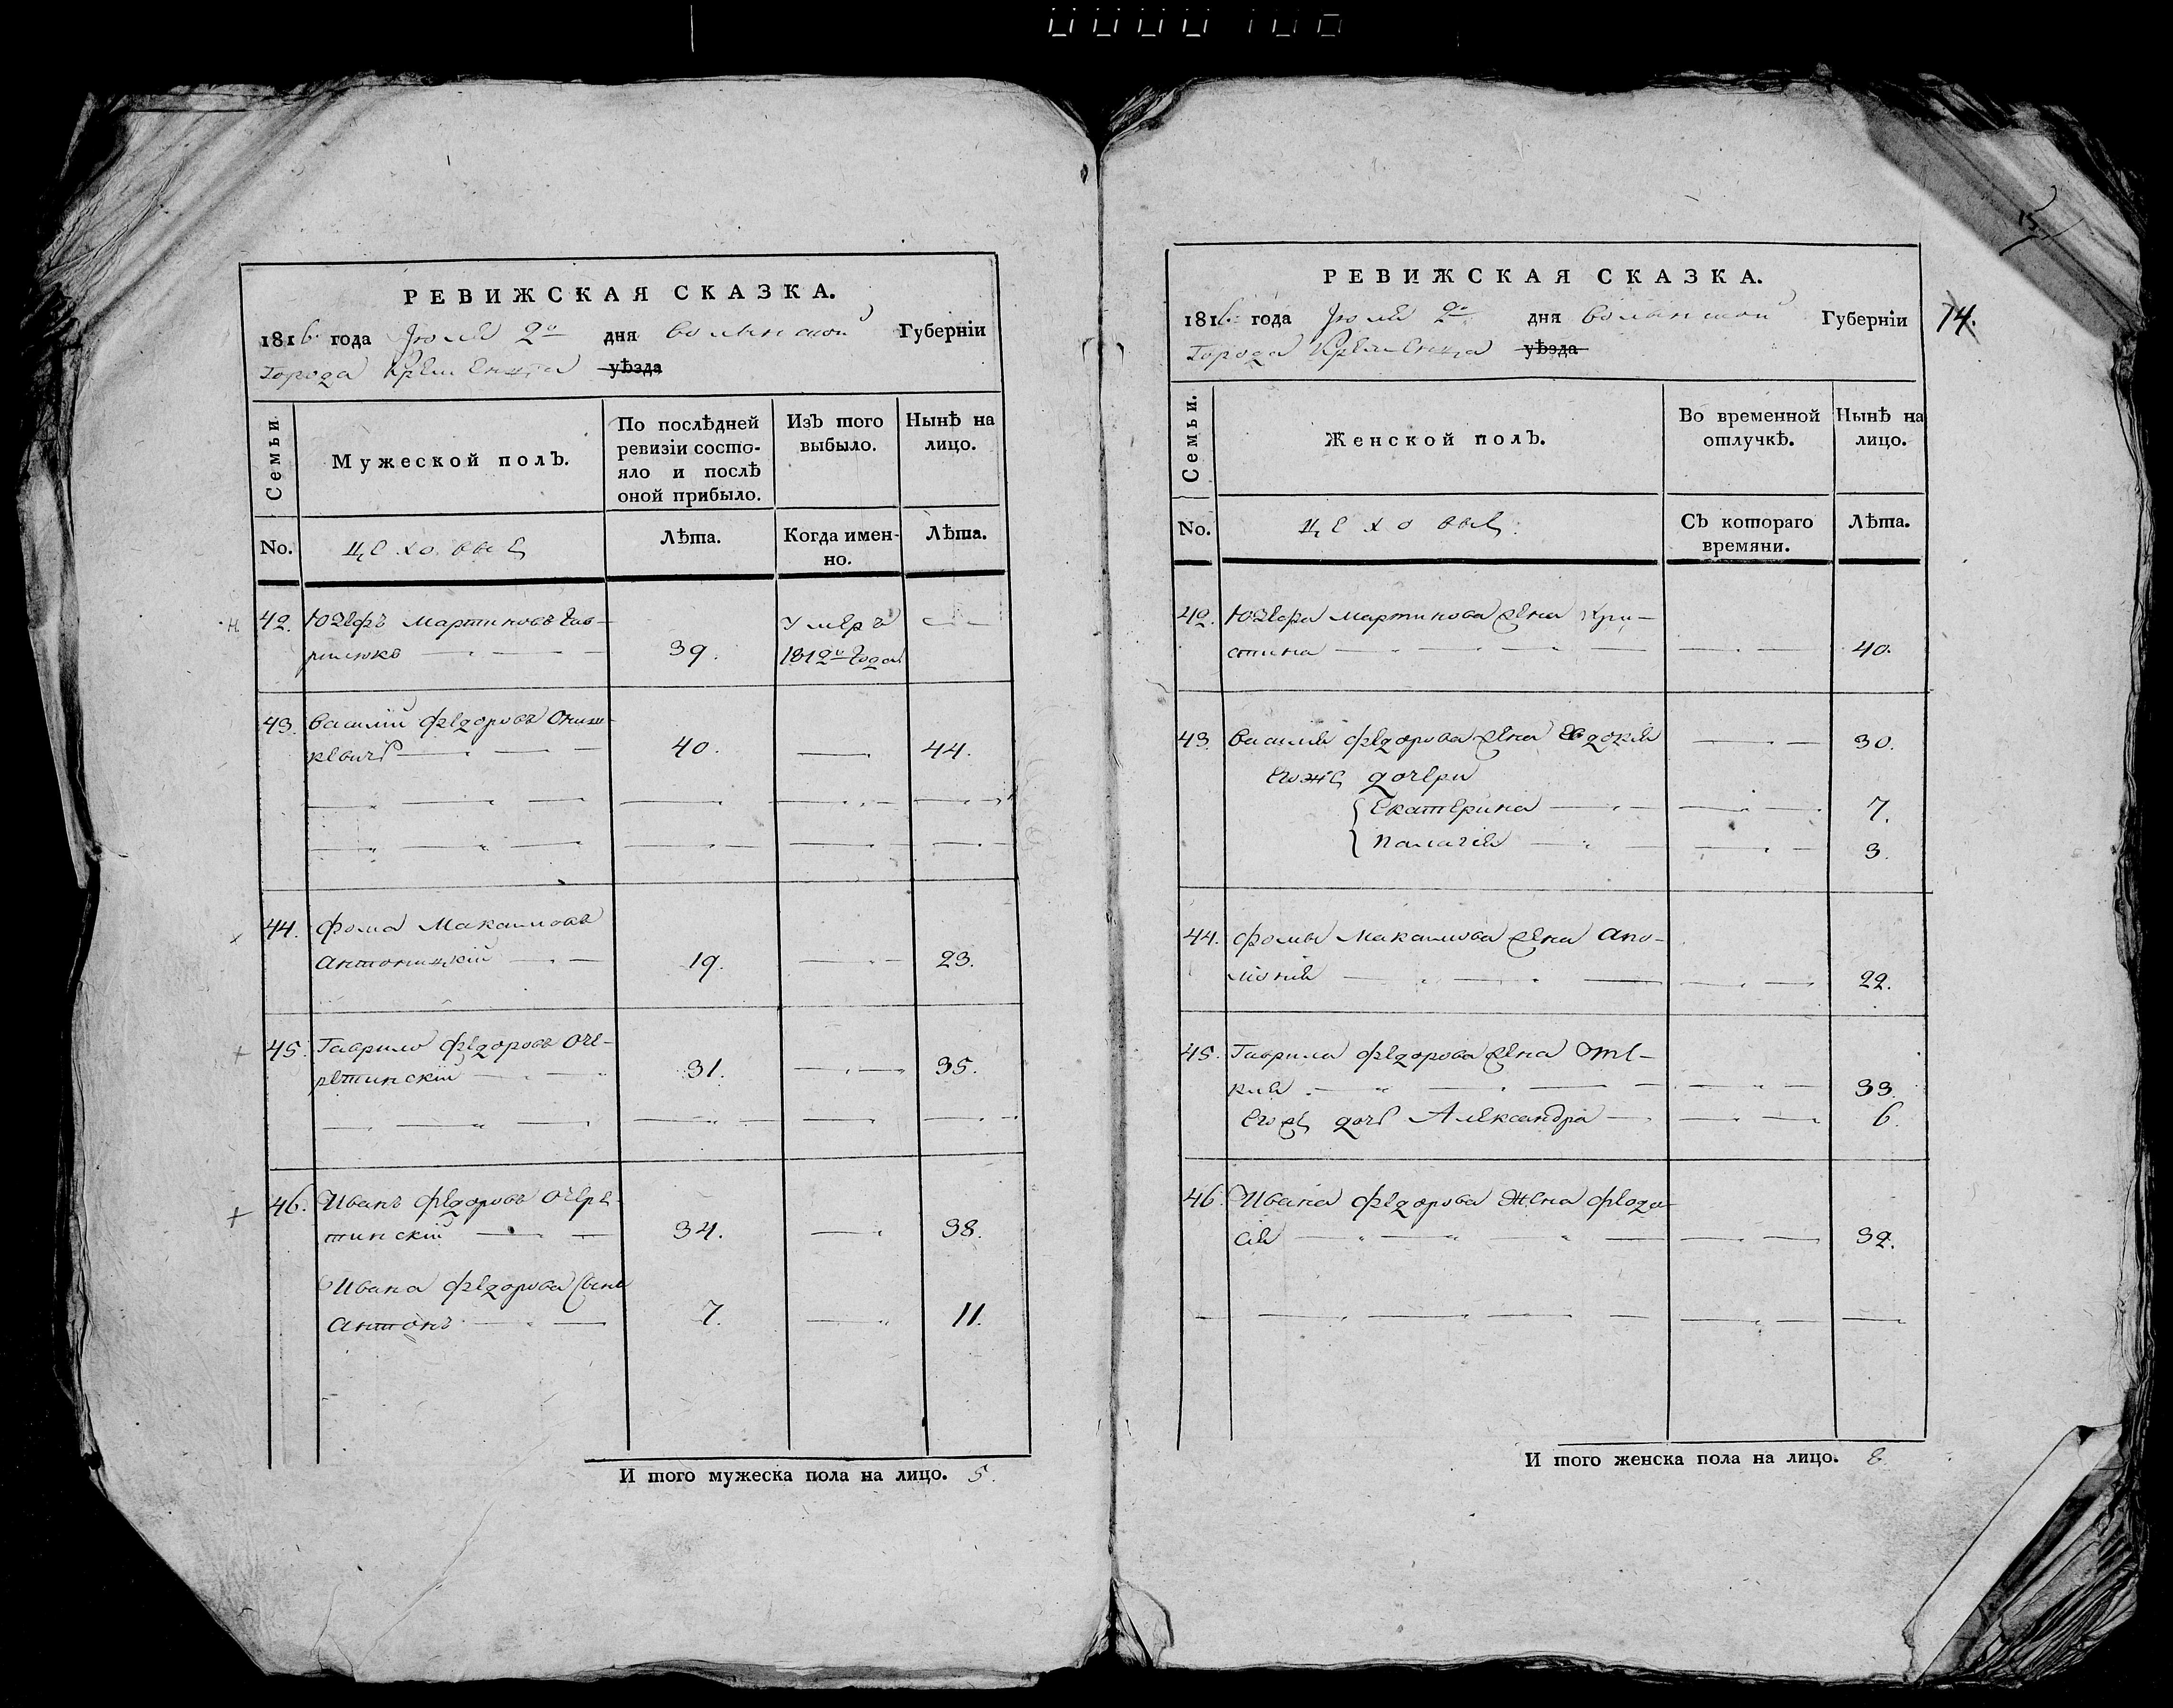 РЕВИЖСКАЯ СКАЗКА.
1816 года Июля 2го дня Волынской Губерніи
Города Кременца уѣзда
Семьи.
Мужеской полъ.
По послѣдней ревизіи состо-
яло и послѣ
оной прибыло.
Изъ того
выбыло.
Нынѣ на
лицо.
No.
цеховые
Лѣта.
Когда имен-
но.
Лѣта.
42. Юзефъ Мартиновъ Гав-
рилюкъ 39. Умеръ
1812го года
43. Василій Федоровъ
кевичъ 40. 44.
44. Фома Максимовъ
Антоницкій 19. 23.
45. Гаврило Федоровъ Оче-
ретинскій 31. 35.
46. Иванъ Федоровъ Очере-
тинскій 34. 38.
Ивана Федорова сынъ
Антонъ 7. 11.
И того мужеска пола на лицо. 5.
РЕВИЖСКАЯ СКАЗКА.
1816 года Июля 2го дня Волынской Губерніи 14.
Города Кременца уѣзда
Семьи.
Женской полъ.
Во временной
отлучкѣ.
Нынѣ на
лицо.
No.
цеховые.
Съ котораго
времяни.
Лѣта.
42. Юзефа Мартинова жена Кри-
стина 40.
43. Василія Федорова жена Евдокія 30.
егоже дочери
Екатерина 7.
Палагія 3.
44. Фомы Максимова жена Апо-
лонія 22.
45. Гаврила Федорова жена Фте-
клія 33.
егоже дочь Александра 6.
46. Ивана Федорова жена Феодо-
сія 32.
И того женска пола на лицо. 8